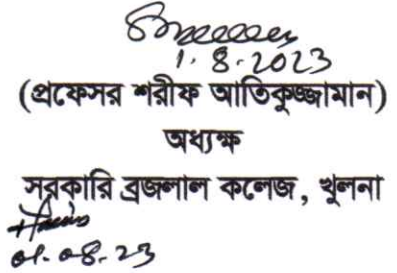 1.8.2023
(প্রফেসর শরীফ আতিকুজ্জামান)
অধ্যক্ষ
সরকারি ব্রজলাল কলেজ, খুলনা
01.08.23